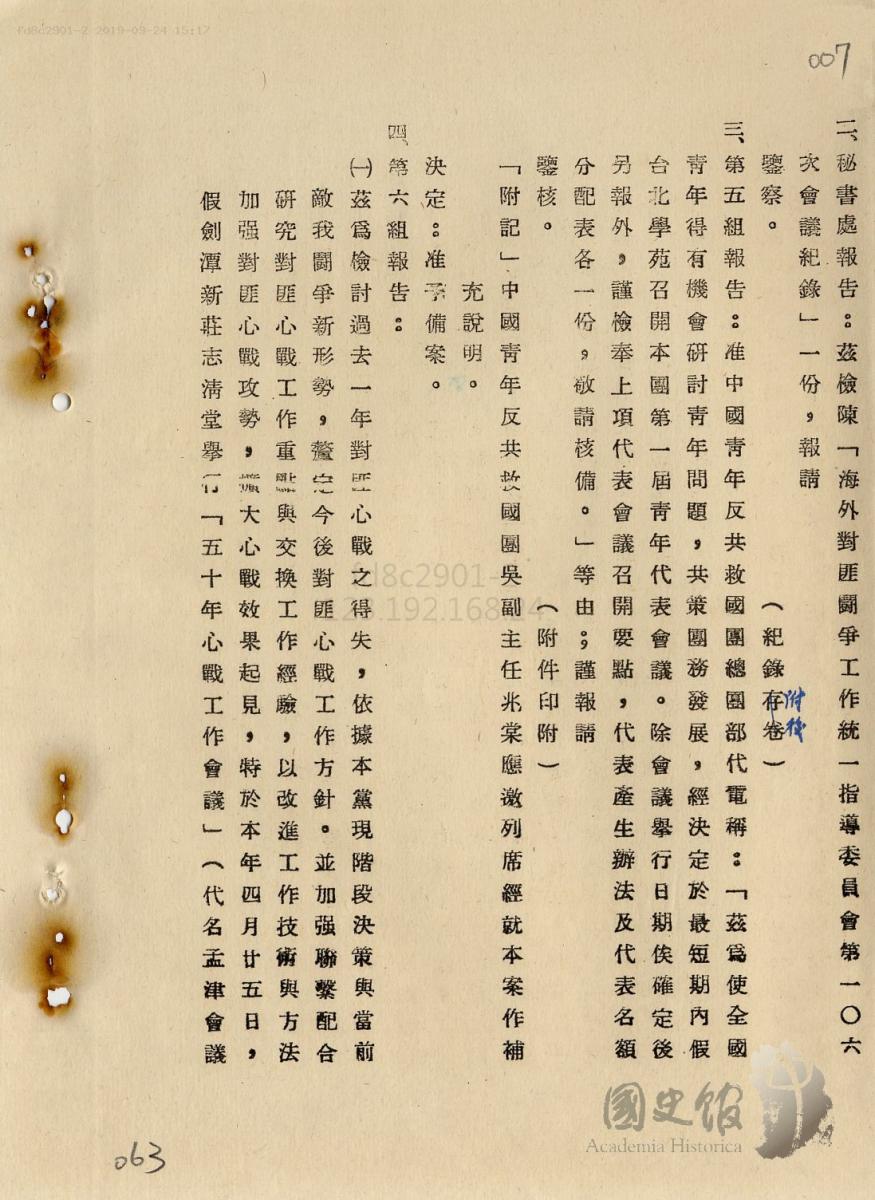 fd8c2901-2 2019-09-24 15:17
007
二、秘書處報告：茲檢陳「海外對匪鬪爭工作統一指導委員會第一〇六
次會議紀錄」一份，報請
鑒察。　　　　　　　　　　（紀錄存卷）
附後
三、第五組報告：准中國青年反共救國團總團部代電稱：「茲為使全國
青年得有機會研討青年問題，共策團務發展，經決定於最短期內假
台北學苑召開本團第一屆青年代表會議。除會議舉行日期俟確定後
另報外，謹檢奉上項代表會議召開要點，代表產生辦法及代表名額
分配表各一份，敬請核備。」等由；謹報請
鑒核。　　　　　　　　　　（附件印附）
「附記」中國青年反共救國團吳副主任兆棠應邀列席經就本案作補
充說明。
決定：准予備案。
四、第六組報告：
㈠茲為檢討過去一年對匪心戰之得失，依據本黨現階段決策與當前
敵我鬪爭新形勢，釐定今後對匪心戰工作方針。並加强聯繫配合
研究對匪心戰工作重點與交換工作經驗，以改進工作技術與方法
加强對匪心戰攻勢，擴大心戰效果起見，特於本年四月廿五日，
假劍潭新莊志淸堂舉行「五十年心戰工作會議」（代名孟津會議
063
國史館
Academia Historica